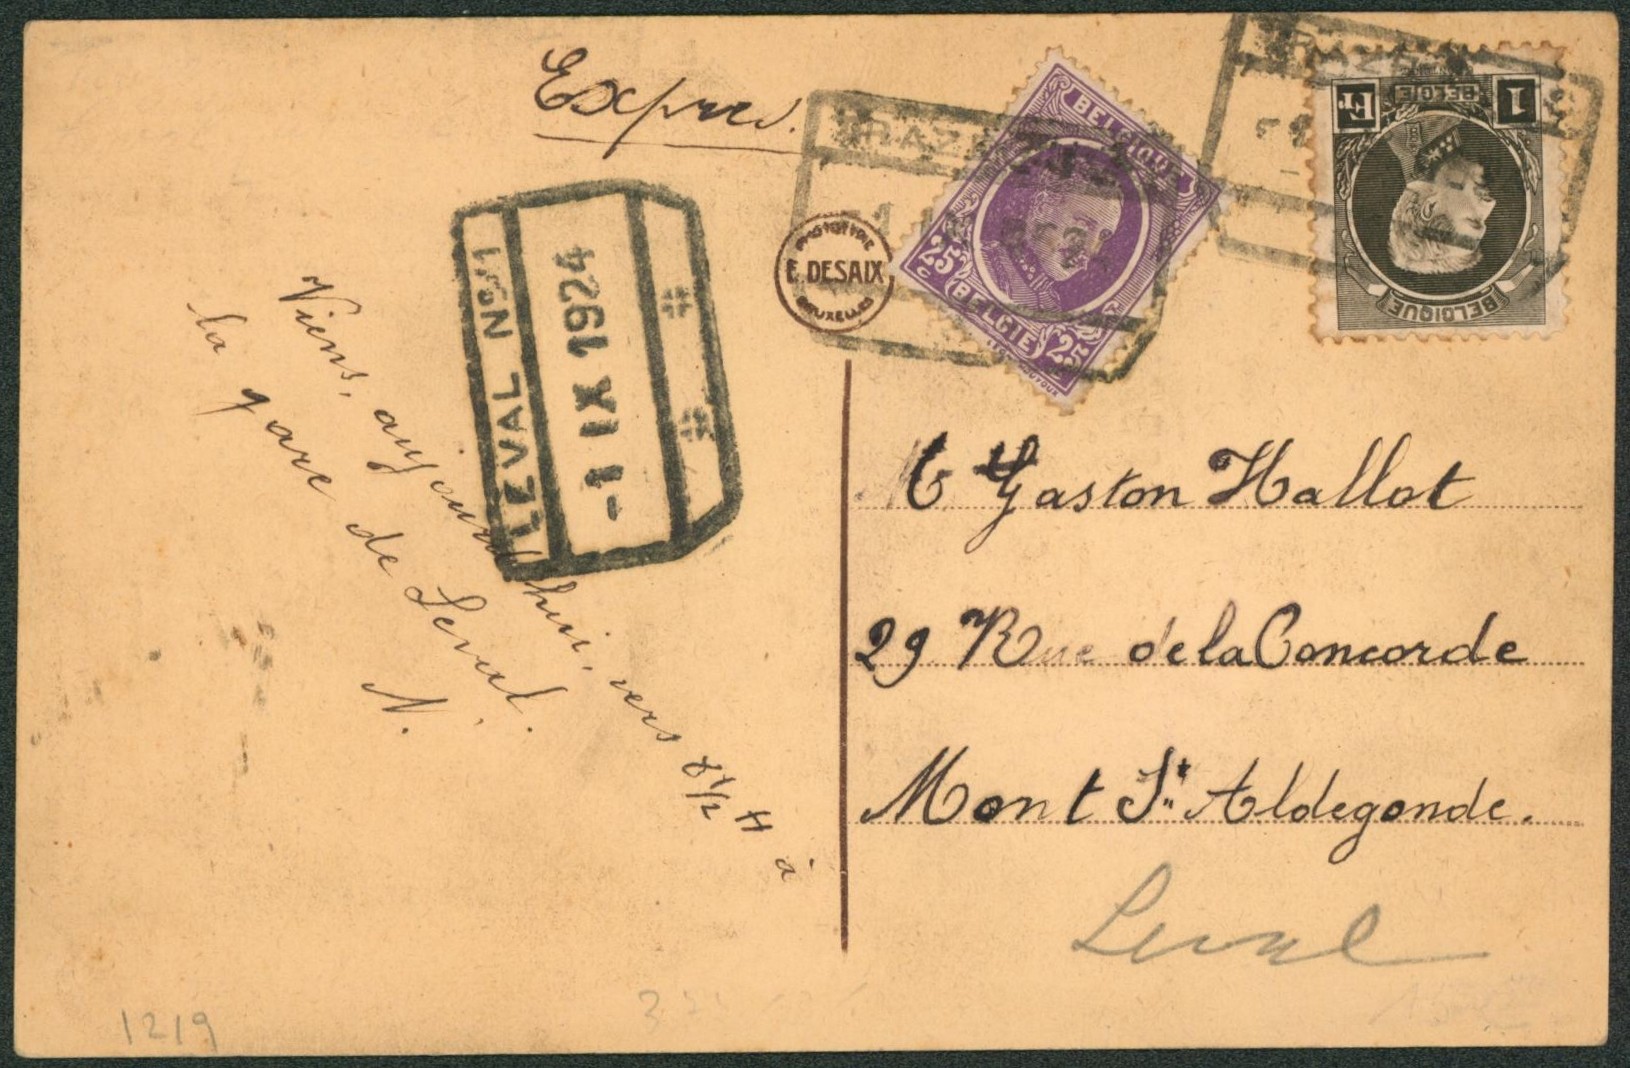 Expres.
PHOTOTYPIE
E. DESAIX
BRUXELLES
BELGIQUE
25
c
BELGIE
25
c
1
Fr
BELGIE
BELGIQUE
LEVAL Nº 1
-1 IX 1924
Viens, aujourd'hui, vers 8 1/2 H à
la gare de Leval.
N.
Gaston Hallot
29 Rue de la Concorde
Mont St. Aldegonde.
Leval
1219